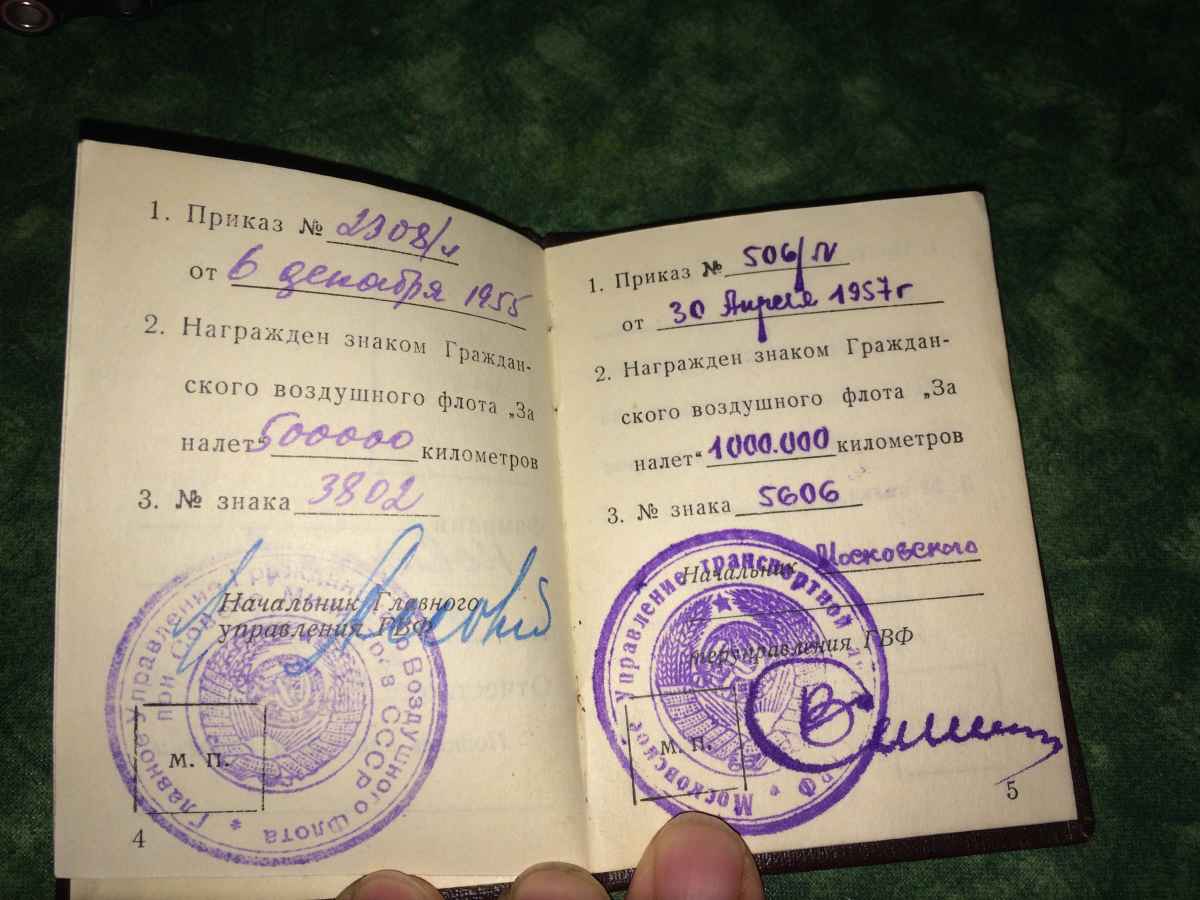 1. Приказ № 2308/л
от 6 декабря 1955
2. Награжден знаком Граждан-
ского воздушного флота „За
налет“ 500000 километров
3. № знака 3802
Начальник Главного
управления ГВФ
М. П.
Главное Управление Гражданского Воздушного Флота
при Совете Министров СССР
4
1. Приказ № 506/л
от 30 Апреля 1957г
2. Награжден знаком Граждан-
ского воздушного флота „За
налет“ 1000.000 километров
3. № знака 5606
Начальник Московского
теруправления ГВФ
М. П.
Московское управление транспортной
ГВФ
5